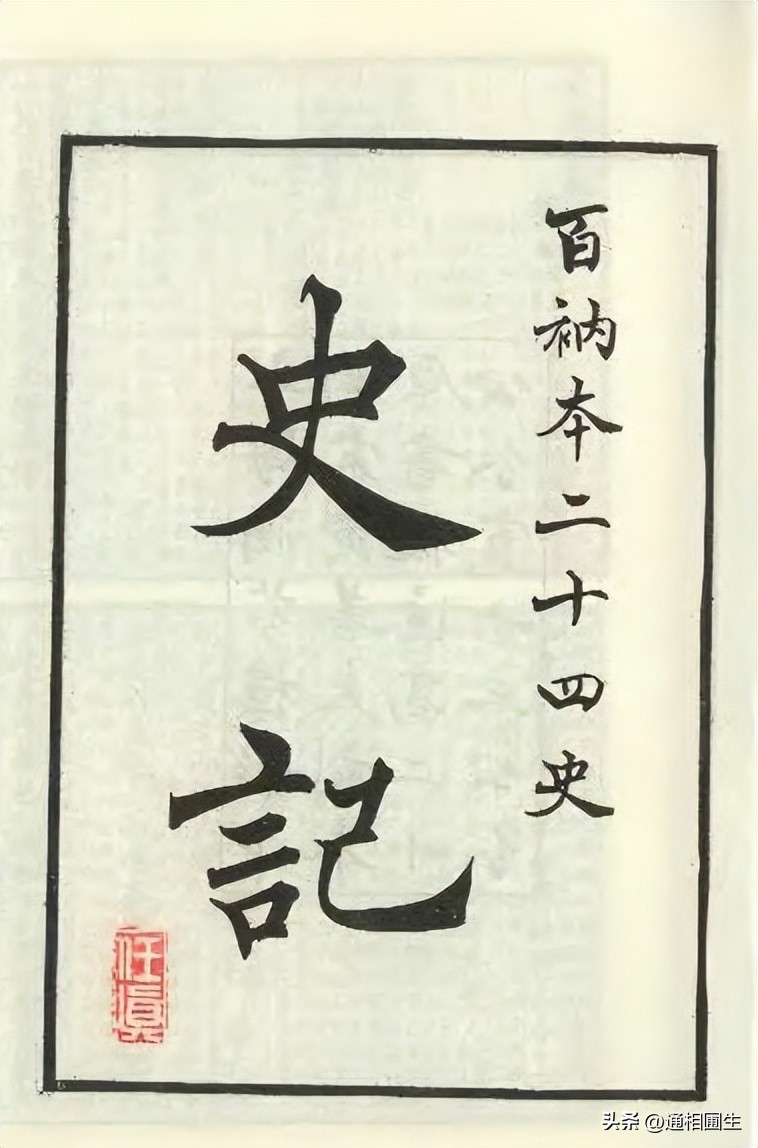 百衲本二十四史
史記
任真
头条 @通相圃生